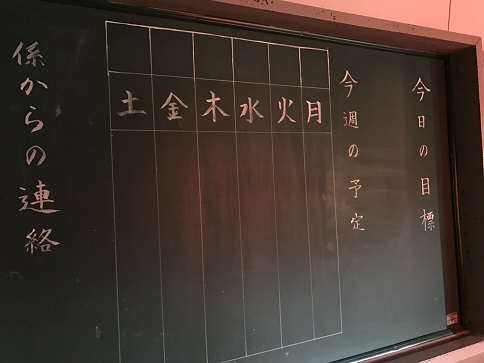 今日の目標
今週の予定
月火水木金土
係からの連絡